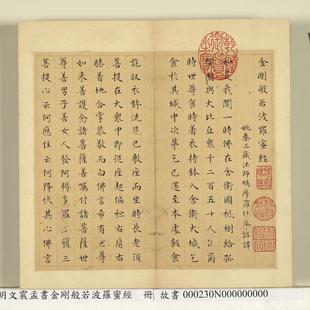 金剛般若波羅蜜經
姚秦三藏法師鳩摩羅什奉詔譯
如是我聞一時佛在舍衛國祇樹給孤
獨園與大比丘眾千二百五十人俱爾
時世尊食時著衣持鉢入舍衛大城乞
食於其城中次第乞已還至本處飯食
訖收衣鉢洗足已敷座而坐時長老須
菩提在大眾中即從座起偏袒右肩右
膝着地合掌恭敬而白佛言希有世尊
如來善護念諸菩薩善付囑諸菩薩世
尊善男子善女人發阿耨多羅三藐三
菩提心云何應住云何降伏其心佛言
明文震孟書金剛般若波羅蜜經 冊 故書 000230N000000000